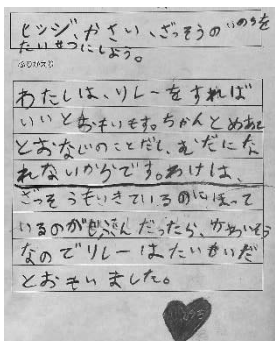 ヒッジ、かさい、ざっそうのいのちを
たいせつにしよう。
ふりかえり
わたしは、リレーをすれば
いいとおもいます。ちゃんとめあて
とおなじのことだし、むだにな
れないからです。わけは、
ざっそうもいきているのにほって
いるのがじぶんだったら、かわいそう
なのでリレーはたいもいだ
とおもいました。